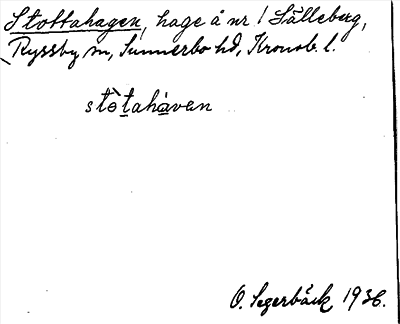 Stottahagen, hage å nr 1 Sälleberg,
Ryssby sn, Sunnerbo hd, Kronob. l.
stòtahàvan
O. Segerbäck 1936.